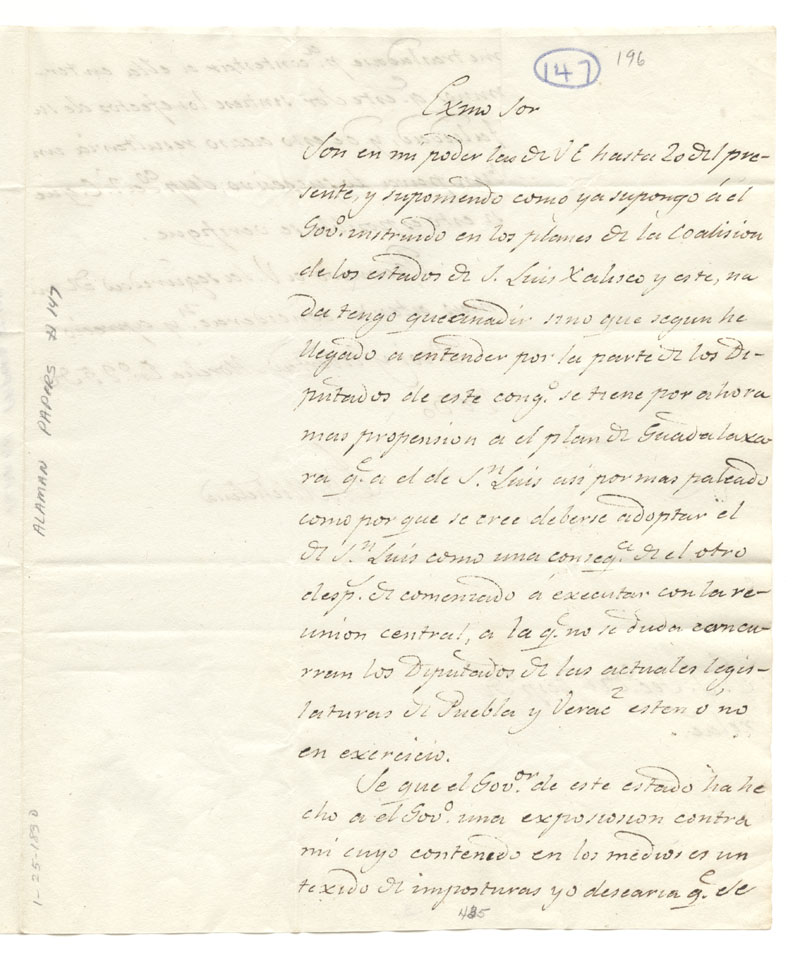 147
196
Exmo Sor
Son en mi poder las de V E hasta 20 del pre-
sente, y suponiendo como ya supongo á el
Govo. instruido en los planes de la Coalision
de los estados de S. Luis Xalisco y este, na
da tengo que anadir sino que segun he
llegado a entender por la parte de los Di-
putados de este congo. se tiene por ahora
mas propension a el plan de Guadalaxa
ra qe. a el de Sn. Luis asi por mas paleado
como por que se cree deberse adoptar el
de Sn. Luis como una conseqa. de el otro
desp. de comenzado á executar con la re-
union central, a la qe. no se duda concu-
rran los Diputados de las actuales legis-
laturas de Puebla y Verac.z esten ó no
en exercicio.
Se que el Govor. de este estado ha he
cho a el Govo. una exposision contra
mi cuyo contenido en los medios es un
texido de imposturas yo desearia qe. se
485
ALAMAN PAPERS #147
1-25-1830